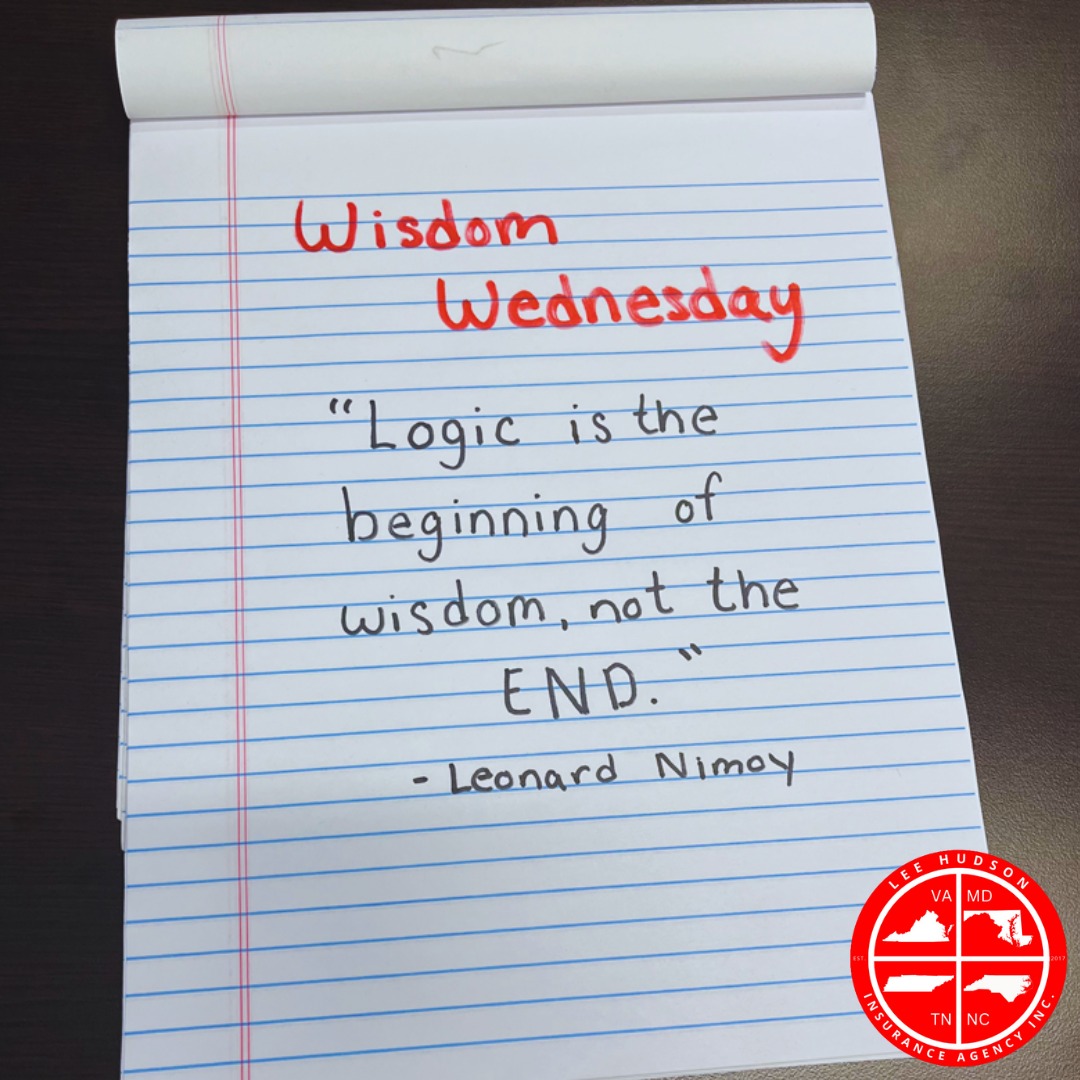 Wisdom
Wednesday
“Logic is the
beginning of
wisdom, not the
END.”
- Leonard Nimoy
LEE HUDSON
VA MD
EST. 2017
TN NC
INSURANCE AGENCY INC.